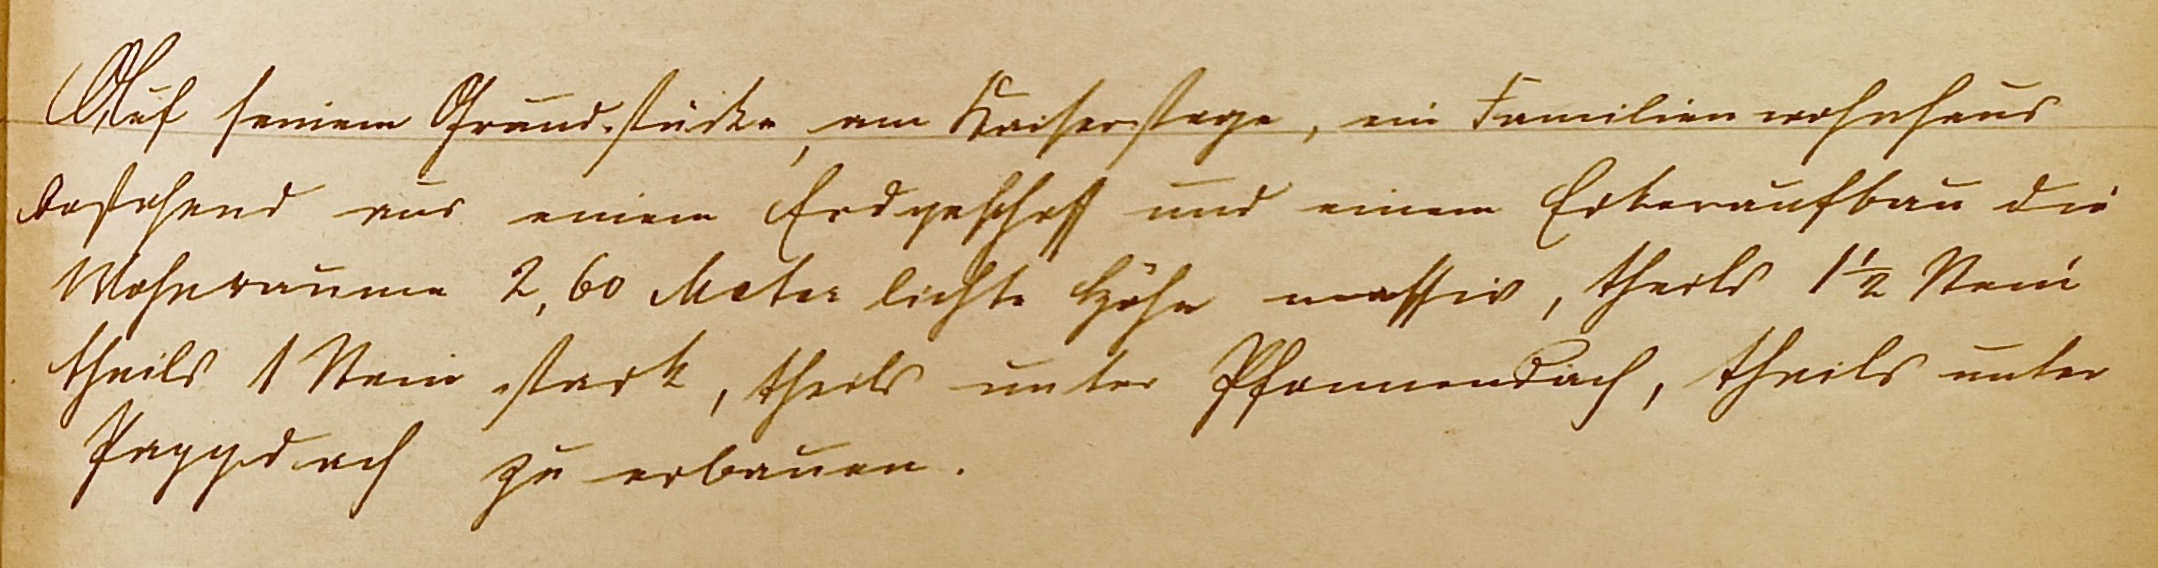 Auf seinem Grundstücke, am Kaiserstege, ein Familienwohnhaus
bestehend aus einem Erdgeschoß und einem Erkeraufbau die
Wohnräume 2,60 Meter lichte Höhe massiv, theils 1½ Stein
theils 1 Stein stark, theils unter Pfannendach, theils unter
Pappdach zu erbauen.